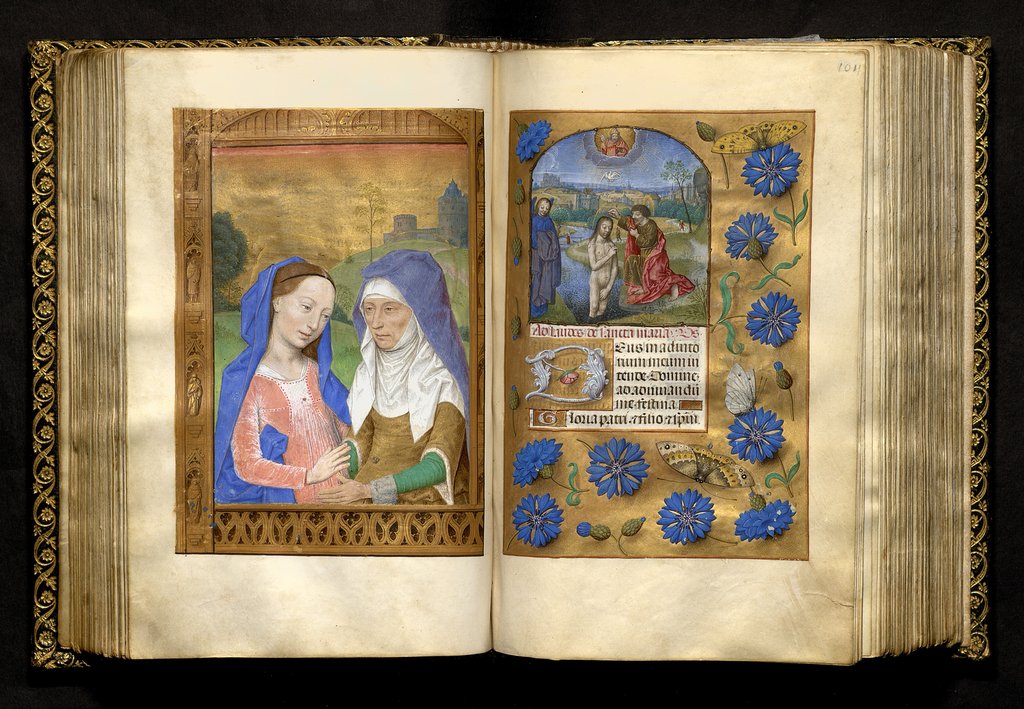 104
Ad laudes de sancta maria. Ds
Eus in adiuto
rium meum in
tende. Domine
ad adiuuandū
me festina
Gloria patri et filio et spiri